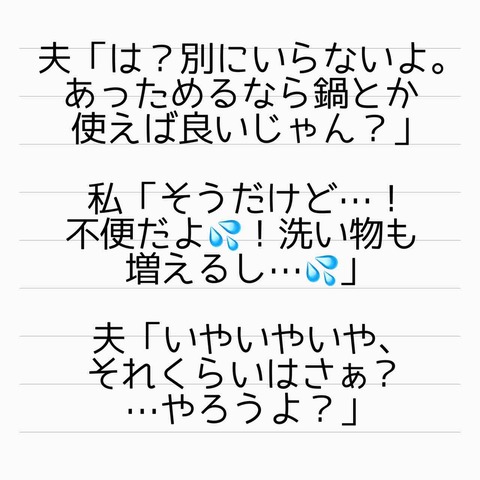 夫「は？別にいらないよ。
あっためるなら鍋とか
使えば良いじゃん？」
私「そうだけど…！
不便だよ💦！洗い物も
増えるし…💦」
夫「いやいやいや、
それくらいはさぁ？
…やろうよ？」